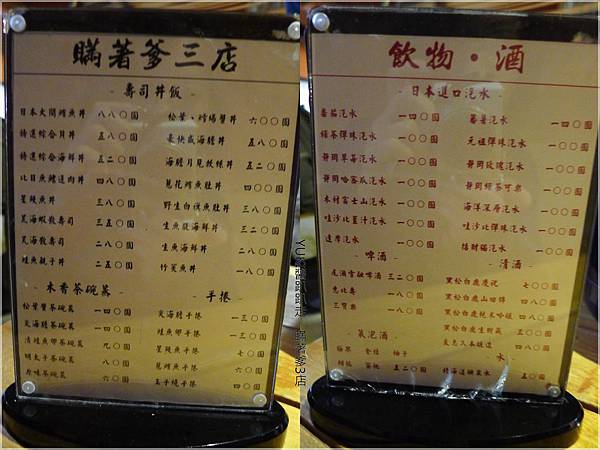 瞞著爹三店
- 壽司丼飯 -
日本大間鮪魚丼 八八〇圓
特選綜合貝丼 五八〇圓
特選綜合海鮮丼 五二〇圓
比目魚鰭邊肉丼 四八〇圓
星鰻魚丼 三八〇圓
炙海蝦散壽司 三五〇圓
炙海散壽司 二八〇圓
鮭魚親子丼 二五〇圓
松葉、鱈場蟹丼 六〇〇圓
豪快盛海膽丼 五八〇圓
海膽月見軟絲丼 五二〇圓
蔥花鮪魚肚丼 四〇〇圓
野生白旗魚肚丼 三八〇圓
生魚蔬海鮮丼 三二〇圓
生魚海鮮丼 二八〇圓
竹筴魚丼 一八〇圓
- 木香茶碗蒸 -
松葉蟹茶碗蒸 一四〇圓
炙海膽茶碗蒸 一四〇圓
清鮭魚卵茶碗蒸 九〇圓
明太子茶碗蒸 八〇圓
原味茶碗蒸 六〇圓
- 手捲 -
炙海膽手捲 一三〇圓
鮭魚卵手捲 一三〇圓
星鰻魚手捲 七〇圓
蔥鮪魚手捲 六〇圓
玉子燒手捲 四〇圓
飲物・酒
- 日本進口汽水 -
番茄汽水 一四〇圓
綠茶彈珠汽水 一〇〇圓
靜岡草莓汽水 一〇〇圓
靜岡哈密瓜汽水 一〇〇圓
木村富士山汽水 一〇〇圓
哇沙比薑汁汽水 一〇〇圓
達摩汽水 一〇〇圓
蕃薯汽水 一四〇圓
元祖彈珠汽水 一〇〇圓
靜岡玫瑰汽水 一〇〇圓
靜岡綠茶可樂 一〇〇圓
海洋深層汽水 一〇〇圓
哇沙比彈珠汽水 一〇〇圓
招財貓汽水 一〇〇圓
- 啤酒 -
尾瀨雪融啤酒 三二〇圓
惠比壽 一八〇圓
三寶樂 一八〇圓
- 清酒 -
黑松白鹿慶祝 七〇〇圓
黑松白鹿山田錦 四八〇圓
黑松白鹿純米吟釀 四八〇圓
黑松白鹿生貯藏 三〇〇圓
- 氣泡酒 -
蘋果 金桔 柚子
蜜桃 三五〇圓
- 水 -
五〇圓